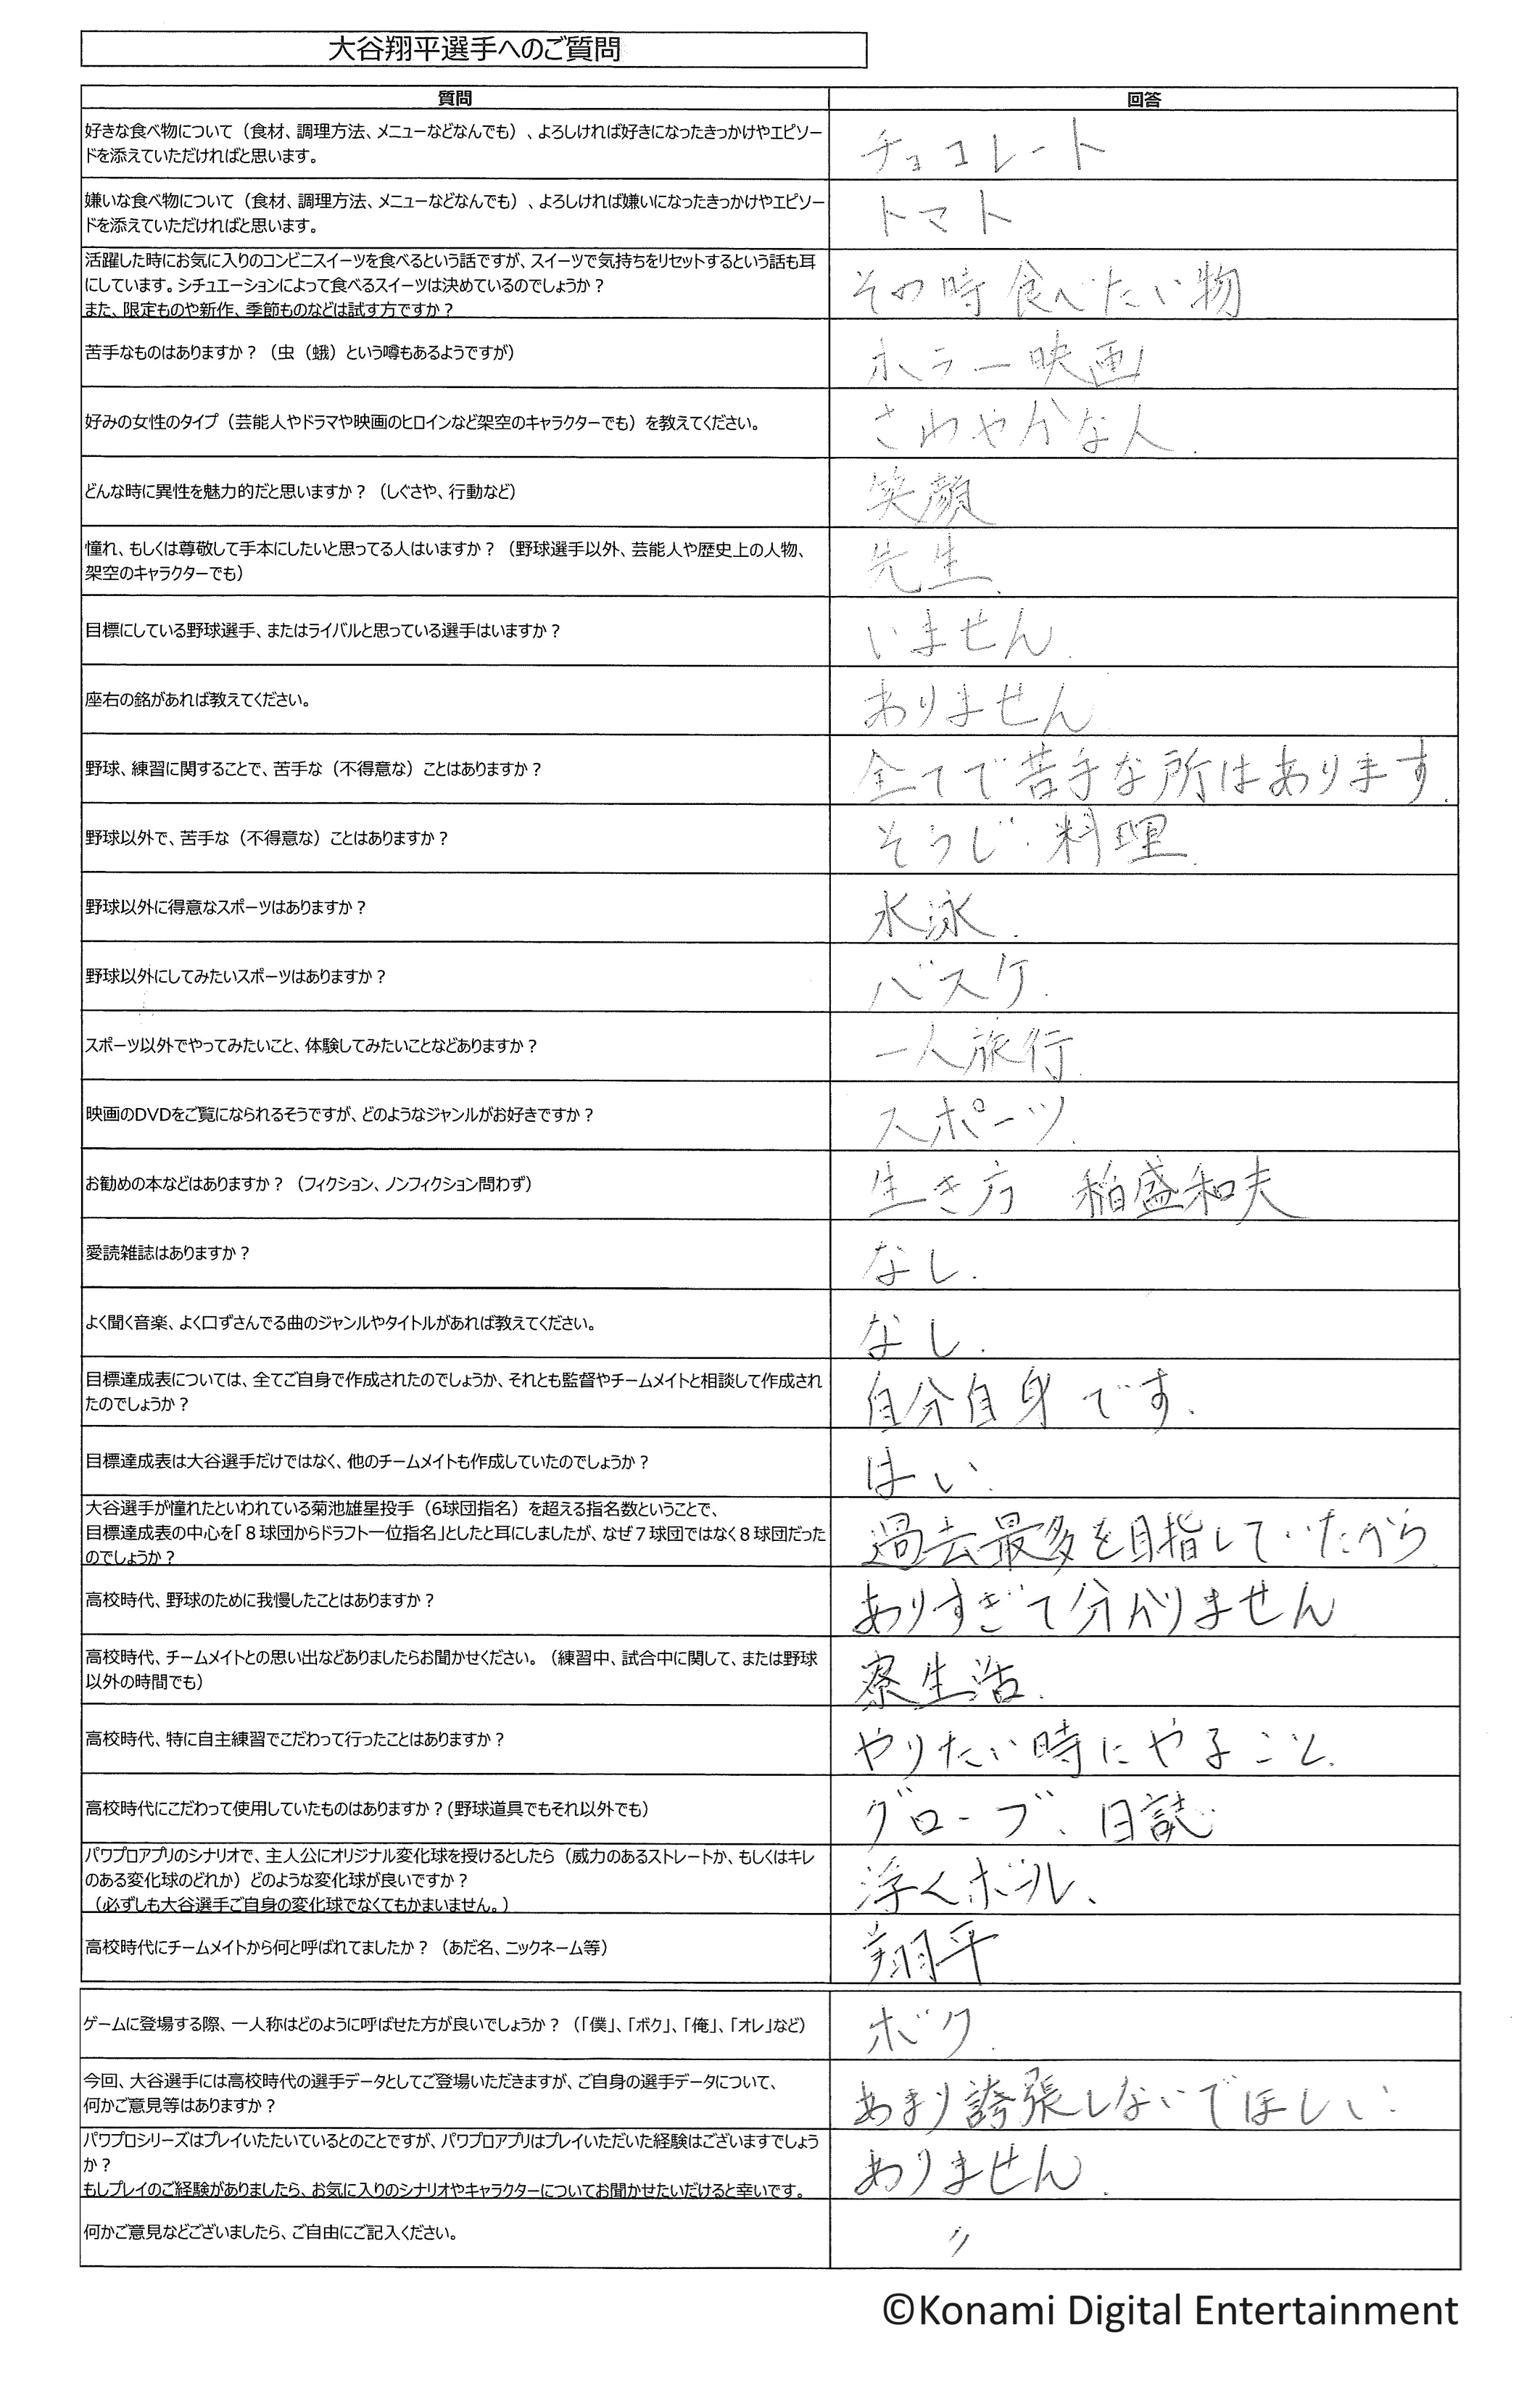 大谷翔平選手へのご質問
質問 回答
好きな食べ物について（食材、調理方法、メニューなどなんでも）、よろしければ好きになったきっかけやエピソー
ドを添えていただければと思います。
チョコレート
嫌いな食べ物について（食材、調理方法、メニューなどなんでも）、よろしければ嫌いになったきっかけやエピソー
ドを添えていただければと思います。
トマト
活躍した時にお気に入りのコンビニスイーツを食べるという話ですが、スイーツで気持ちをリセットするという話も耳
にしています。シチュエーションによって食べるスイーツは決めているのでしょうか？
また、限定ものや新作、季節ものなどは試す方ですか？
その時食べたい物
苦手なものはありますか？（虫（蛾）という噂もあるようですが）
ホラー映画
好みの女性のタイプ（芸能人やドラマや映画のヒロインなど架空のキャラクターでも）を教えてください。
さわやかな人.
どんな時に異性を魅力的だと思いますか？（しぐさや、行動など）
笑顔
憧れ、もしくは尊敬して手本にしたいと思ってる人はいますか？（野球選手以外、芸能人や歴史上の人物、
架空のキャラクターでも）
先生.
目標にしている野球選手、またはライバルと思っている選手はいますか？
いません.
座右の銘があれば教えてください。
ありません
野球、練習に関することで、苦手な（不得意な）ことはありますか？
全てで苦手な所はあります.
野球以外で、苦手な（不得意な）ことはありますか？
そうじ・料理.
野球以外に得意なスポーツはありますか？
水泳.
野球以外にしてみたいスポーツはありますか？
バスケ.
スポーツ以外でやってみたいこと、体験してみたいことなどありますか？
一人旅行.
映画のDVDをご覧になられるそうですが、どのようなジャンルがお好きですか？
スポーツ.
お勧めの本などはありますか？（フィクション、ノンフィクション問わず）
生き方 稲盛和夫
愛読雑誌はありますか？
なし.
よく聞く音楽、よく口ずさんでる曲のジャンルやタイトルがあれば教えてください。
なし.
目標達成表については、全てご自身で作成されたのでしょうか、それとも監督やチームメイトと相談して作成され
たのでしょうか？
自分自身です.
目標達成表は大谷選手だけではなく、他のチームメイトも作成していたのでしょうか？
はい.
大谷選手が憧れたといわれている菊池雄星投手（6球団指名）を超える指名数ということで、
目標達成表の中心を「８球団からドラフト一位指名」としたと耳にしましたが、なぜ７球団ではなく８球団だった
のでしょうか？
過去最多を目指していたから.
高校時代、野球のために我慢したことはありますか？
ありすぎて分かりません
高校時代、チームメイトとの思い出などありましたらお聞かせください。（練習中、試合中に関して、または野球
以外の時間でも）
寮生活.
高校時代、特に自主練習でこだわって行ったことはありますか？
やりたい時にやること.
高校時代にこだわって使用していたものはありますか？(野球道具でもそれ以外でも）
グローブ、日誌
パワプロアプリのシナリオで、主人公にオリジナル変化球を授けるとしたら（威力のあるストレートか、もしくはキレ
のある変化球のどれか）どのような変化球が良いですか？
（必ずしも大谷選手ご自身の変化球でなくてもかまいません。）
浮くボール、
高校時代にチームメイトから何と呼ばれてましたか？（あだ名、ニックネーム等）
翔平
ゲームに登場する際、一人称はどのように呼ばせた方が良いでしょうか？（「僕」、「ボク」、「俺」、「オレ」など）
ボク.
今回、大谷選手には高校時代の選手データとしてご登場いただきますが、ご自身の選手データについて、
何かご意見等はありますか？
あまり誇張しないでほしい.
パワプロシリーズはプレイいたたいているとのことですが、パワプロアプリはプレイいただいた経験はございますでしょう
か？
もしプレイのご経験がありましたら、お気に入りのシナリオやキャラクターについてお聞かせたいだけると幸いです。
ありません.
何かご意見などございましたら、ご自由にご記入ください。
〃
©Konami Digital Entertainment